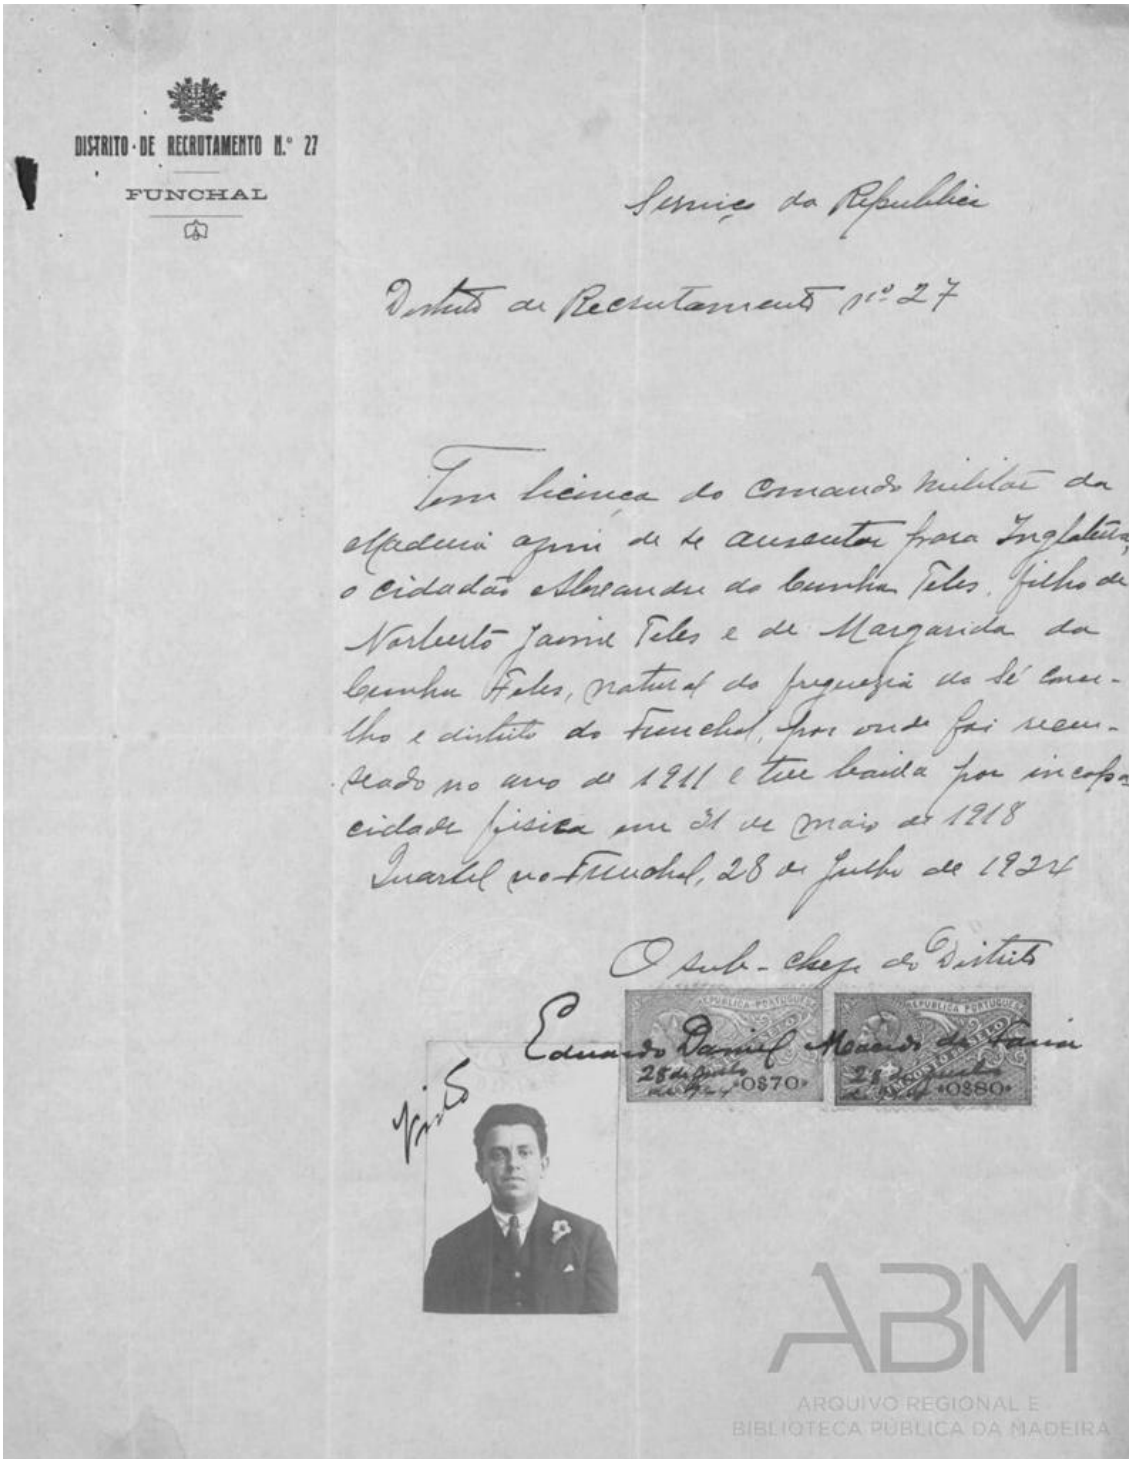 DISTRITO DE RECRUTAMENTO N.º 27
FUNCHAL
Serviço da Republica
Distrito de Recrutamento nº 27
Tem licença do Comando Militar da
Madeira afim de se ausentar para Inglaterra,
o cidadão Alexandre da Cunha Teles, filho de
Norberto Jaime Teles e de Margarida da
Cunha Teles, natural da freguezia da Sé conce-
lho e distrito do Funchal, por onde foi recen-
seado no ano de 1911 e teve baixa por incapa-
cidade fisica em 31 de Maio de 1918
Quartel no Funchal, 28 de Julho de 1924
O sub-chefe do Distrito
REPUBLICA PORTUGUESA
REPUBLICA PORTUGUESA
Eduardo Daniel Macedo de Faria
28 de Julho
de 1924
0$70
28 de Julho
de 1924
0$80
Visto
ABM
ARQUIVO REGIONAL E
BIBLIOTECA PÚBLICA DA MADEIRA